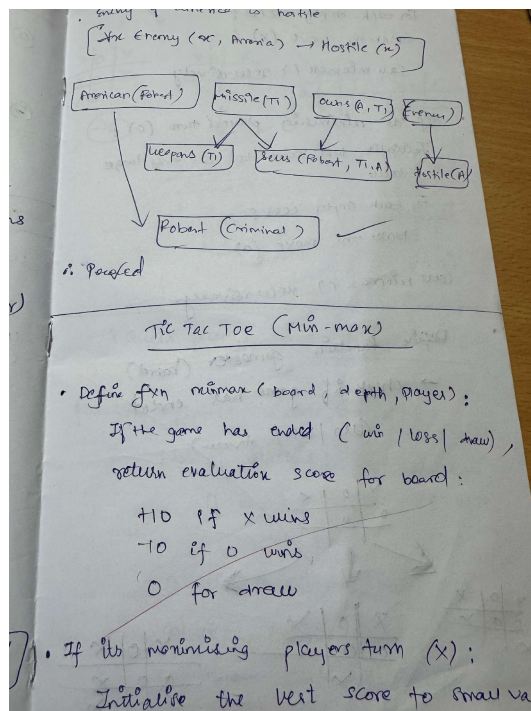 Enemy of America is hostile
∀x Enemy (x, America) → Hostile (x)
American (Robert) Missile (T1) owns (A, T1) Enemy)
Weapons (T1) Sells (Robert, T1, A) Hostile (A)
Robert (Criminal)
∴ Proofed
Tic Tac Toe (Min-max)
• Define fxn minmax ( board, depth, player) :
If the game has ended ( win / loss / draw) ,
return evaluation score for board :
+10 if x wins
-10 if 0 wins
0 for draw
• If its maximising players turn (X) :
Initialise the best score to small va